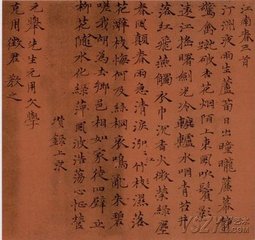 江南春三首
汀洲夜雨生蘆筍日出曈曨簾幕靜
驚禽蹴破杏花烟陌上東風吹鬢影
遠江搖曙劍光冷轆轤水咽青苔井
落紅飛燕觸衣巾沉香火微縈綠塵
春風顛春雨急清淚泓泓竹濕落
花辭枝悔何及絲桐哀鳴亂朱碧
嗟我胡為去鄉邑相如家徒四壁立
柳花入水化綠萍風波浩蕩心怔營
瓚錄上求
元舉先生元用文學
克用徵君教之